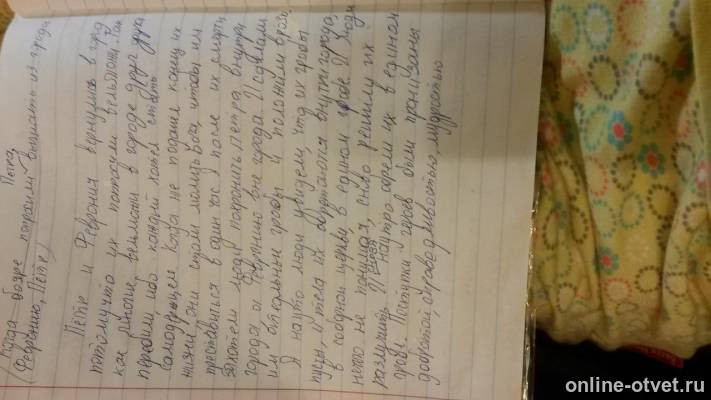 (когда бояре попросили выгнать из города
Февронию, Пётр
Петр
Пётр и Феврония вернулись в город
потому что их попросили вельможи. Так
как многие вельможи в городе друг друга
перебили ибо каждый хотел стать
самодержцем. Когда не подошел конец их
жизни они стали молить бога, чтобы им
преставиться в один час. После их смерти
захотели люди похоронить Петра внутри
города а Февронию вне города. И сделали
им отдельные гробы и положили врозь.
А наутро люди увидели, что их гробы
пусты, и тела их обретаются внутри города,
в соборной церкви в едином гробе. И люди
ничего не понимая, снова решили их
разлучить. И вновь наутро обрели их в едином
гробе. Поступки героев были пронизаны
добротой, справедливостью, мудростью
online-otvet.ru